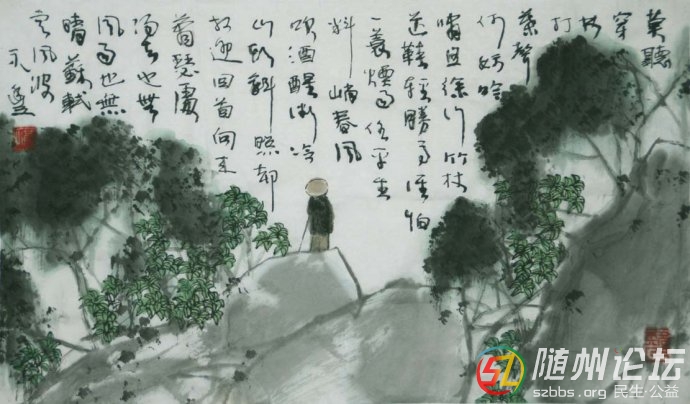 莫聽
穿
林
打
葉聲
何妨吟
嘯且徐行竹杖
芒鞋輕勝馬誰怕
一蓑煙雨任平生
料峭春風
吹酒醒微冷
山頭斜照却
相迎回首向來
蕭瑟處
歸去也無
風雨也無
晴蘇軾
定風波
随州论坛
szbbs.org 民生·公益